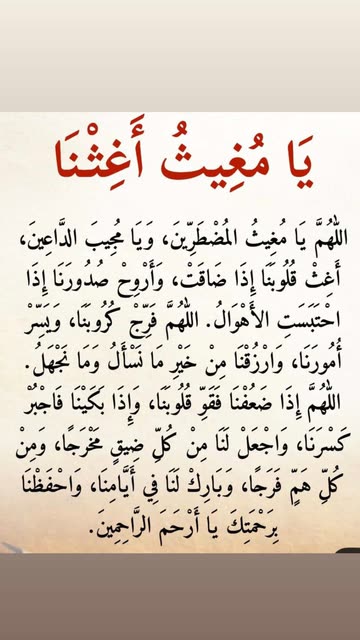 يَا مُغِيثُ أَغِثْنَا
اللّٰهُمَّ يَا مُغِيثُ المُضْطَرِّينَ، وَيَا مُجِيبَ الدَّاعِينَ،
أَغِثْ قُلُوبَنَا إِذَا ضَاقَتْ، وَأَرْوِحْ صُدُورَنَا إِذَا
احْتَبَسَتِ الأَهْوَالُ. اللّٰهُمَّ فَرِّجْ كُرُوبَنَا، وَيَسِّرْ
أُمُورَنَا، وَارْزُقْنَا مِنْ خَيْرِ مَا نَسْأَلُ وَمَا نَجْهَلُ.
اللّٰهُمَّ إِذَا ضَعُفْنَا فَقَوِّ قُلُوبَنَا، وَإِذَا بَكَيْنَا فَاجْبُرْ
كَسْرَنَا، وَاجْعَلْ لَنَا مِنْ كُلِّ ضِيقٍ مَخْرَجًا، وَمِنْ
كُلِّ هَمٍّ فَرَجًا، وَبَارِكْ لَنَا فِي أَيَّامِنَا، وَاحْفَظْنَا
بِرَحْمَتِكَ يَا أَرْحَمَ الرَّاحِمِينَ.